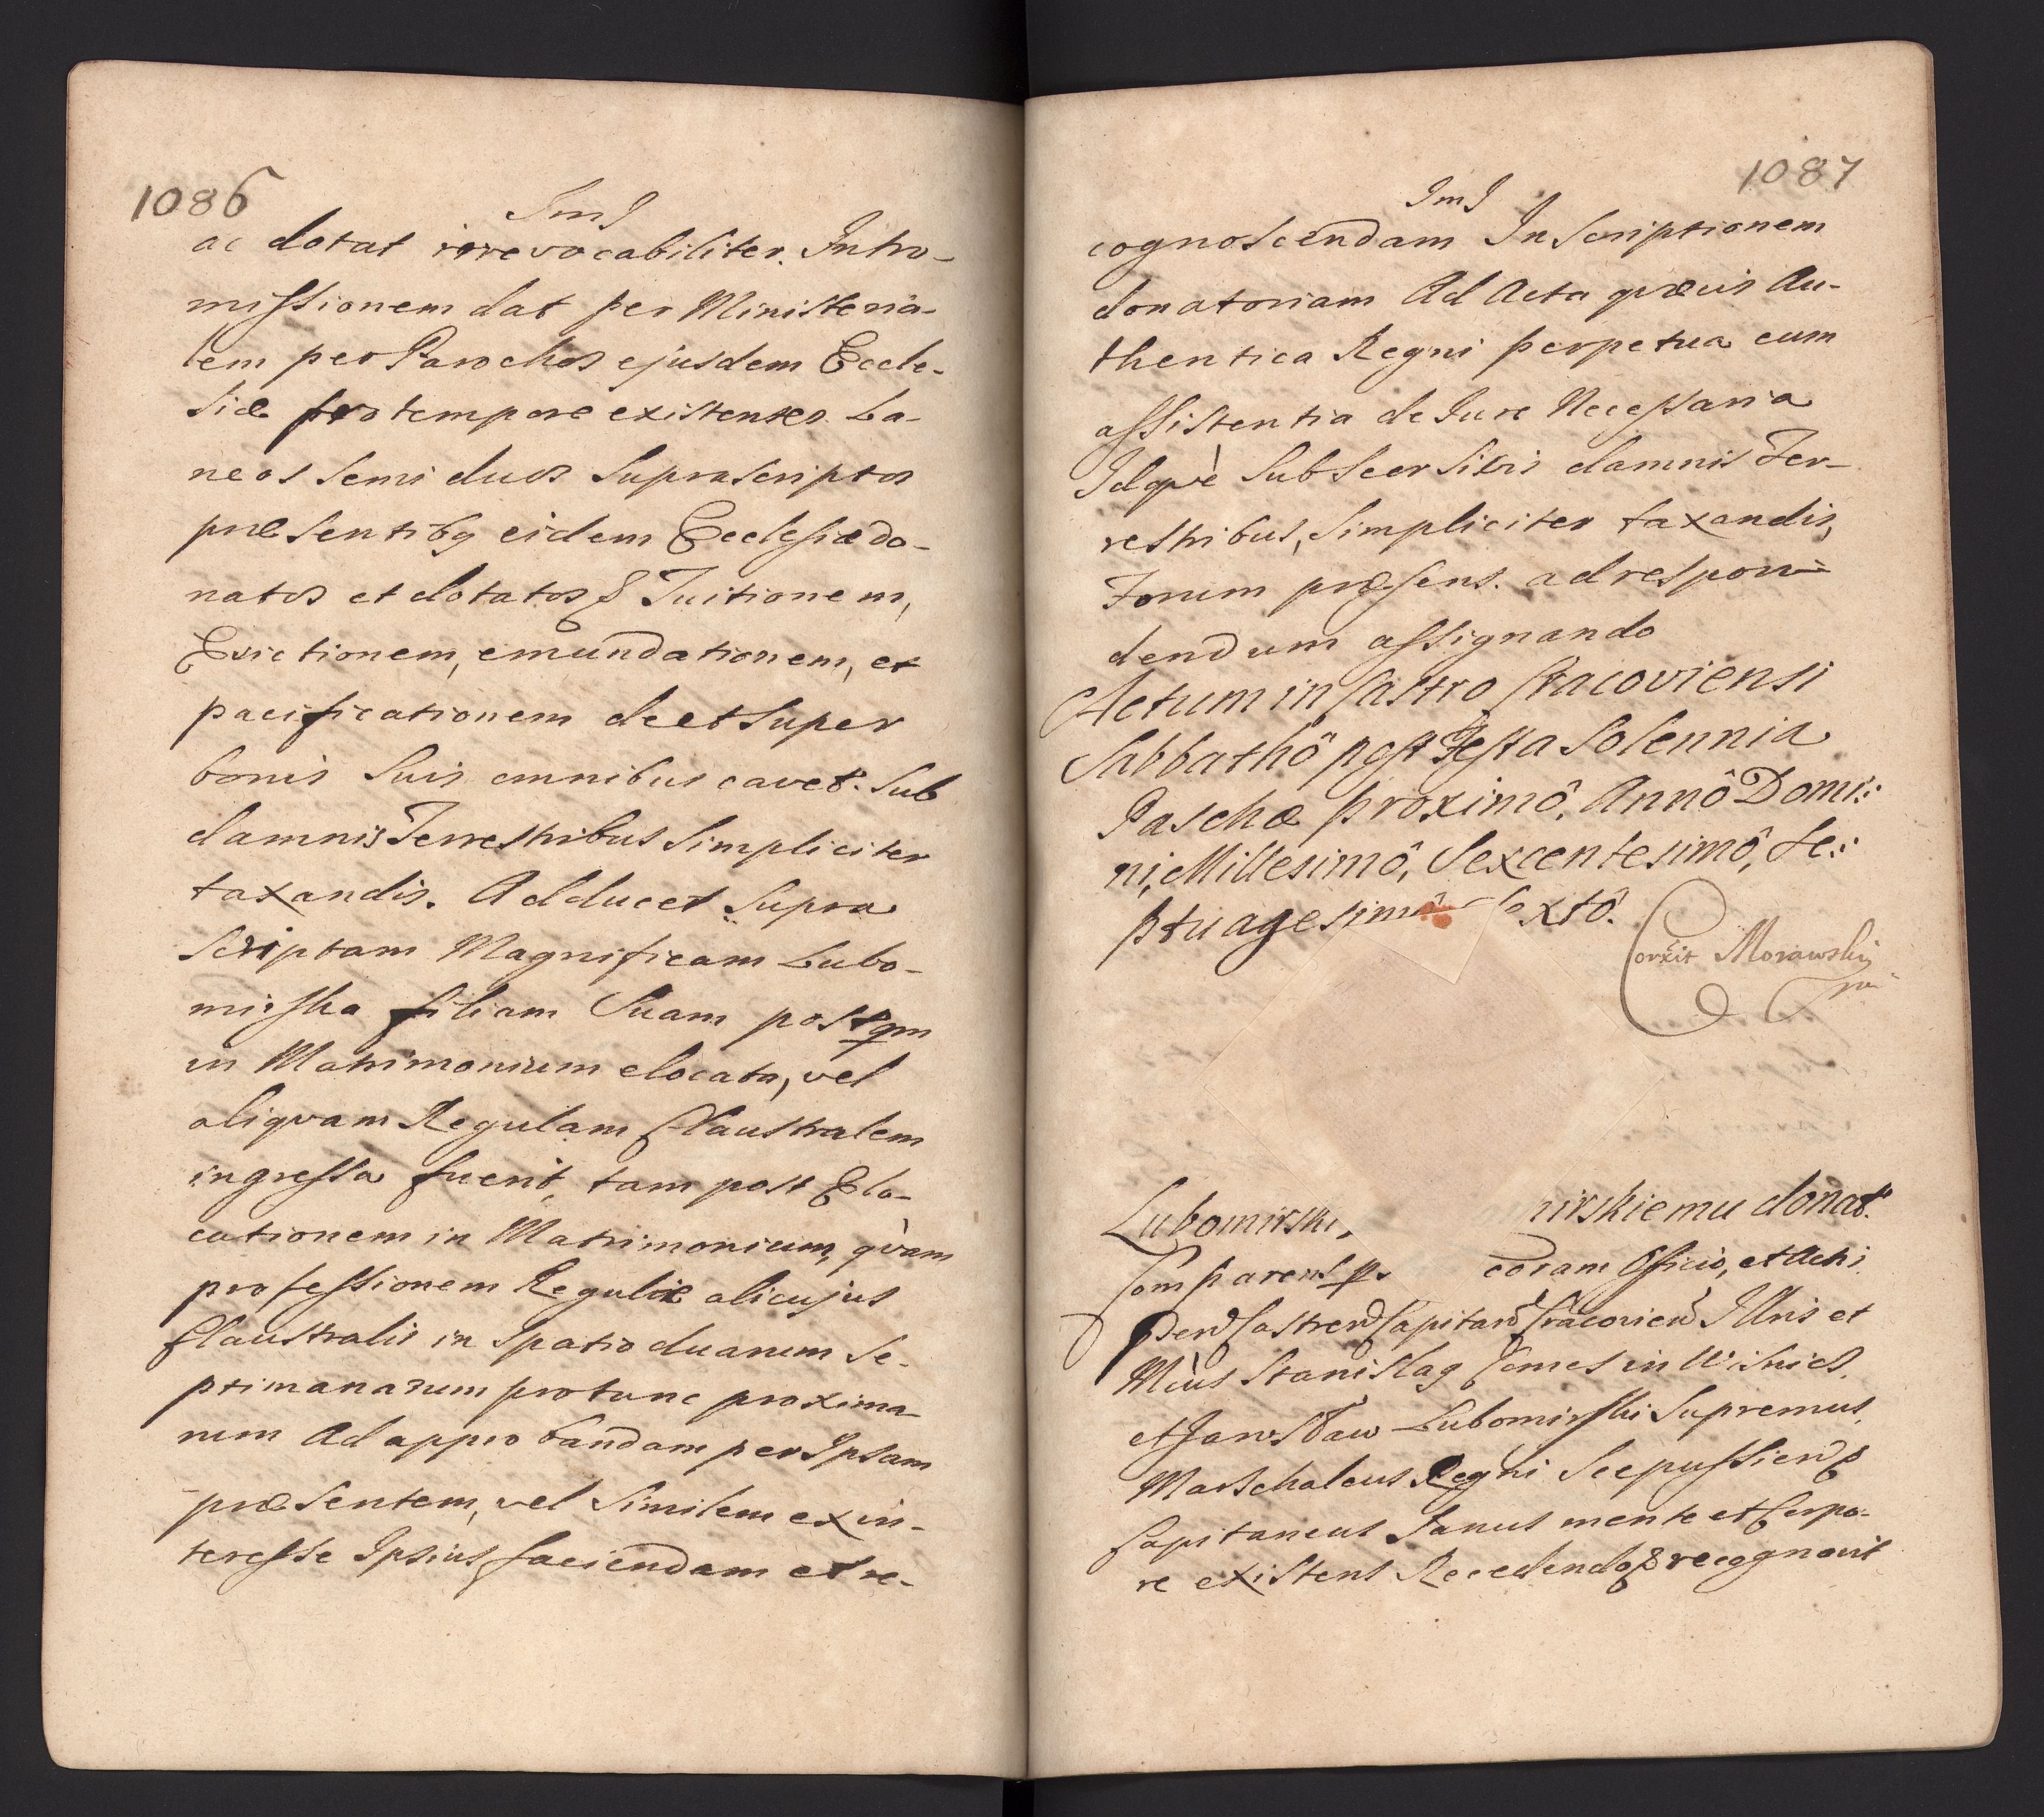 1086
ImJ
ac dotat irrevocabiliter. Intro-
missionem dat per Ministeria-
lem per Parochos ejusdem Eccle-
siæ pro tempore existentes. La-
neos semi duos suprascriptos
præsentibg eidem Ecclesiæ do-
natos et dotatos Tuitionem,
Evictionem, emundationem, et
pacificationem de et super
bonis suis omnibus cavet. Sub
damnis Terrestribus simpliciter
taxandis. Adducet supra
scriptam Magnificam Lubo-
mirska filiam suam postqm
in Matrimonium elocata, vel
aliqvam Regulam Claustralem
ingressa fuerit, tam post Elo-
cationem in Matrimonium, qvàm
professionem Regulæ alicujus
Claustralis in spatio duarum se-
ptimanarum protunc proxima-
rum Ad approbandam per Ipsam
præsentem, vel similem ex in-
teresse Ipsius faciendam et re-
1087
ImJ
cognoscendam Inscriptionem
donatoriam Ad Acta qvævis Au-
thentica Regni perpetua cum
assistentia de Jure Necessaria
Idqvè sub damnis Ter-
restribus, simpliciter taxandis,
Forum præsens. ad respon-
dendum assignando
Actum in Castro Cracoviensi
Sabbathô post Festa Solennia
Paschæ proximô, Annô Domi:
ni, Millesimô, Sexcentesimô, Se:
ptuagesimô Sextô.
Corrxit Morawski
Lubomirski, mirskiemu donat.
Comparens coram Officio, et Acti
Castren Capitan Cracovien Illris et
Mcus Stanislag Comes in Wisnicz.
et Jarosław Lubomirski Supremus
Marschalcus Regni Scepussien
Capitaneus Sanus mente et Corpo-
re existens Recedendo recognovit